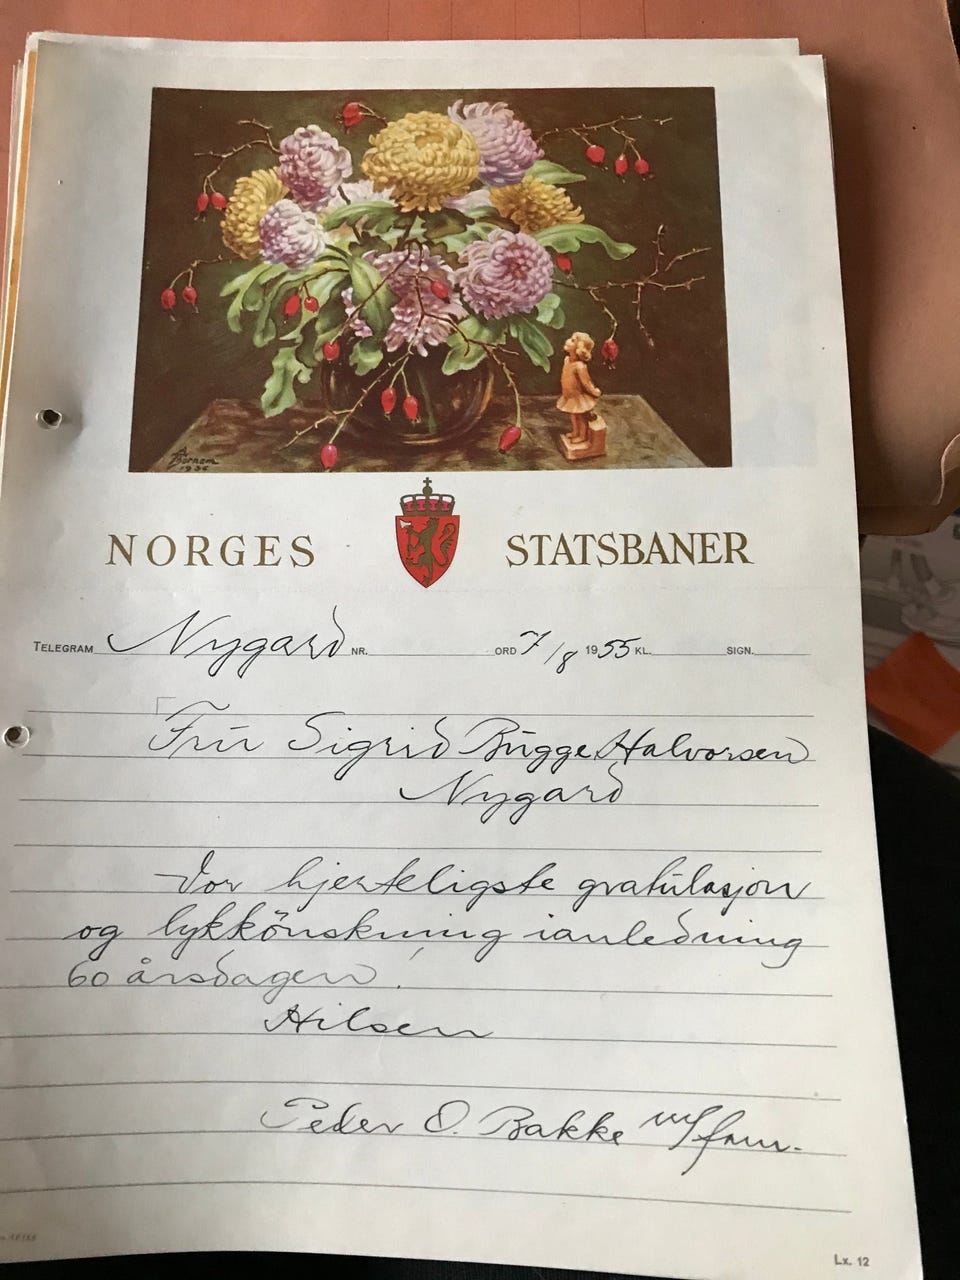 1936
NORGES STATSBANER
TELEGRAM Nygard NR. ORD 7/8 1955 KL. SIGN.
Frú Sigrid Bugge Halvorsen
Nygard
Vor hjerteligste gratulasjon
og lykkönskning ianledning
60 årsdagen!
Hilsen
Peder O. Bakke m/fam.
Lx. 12